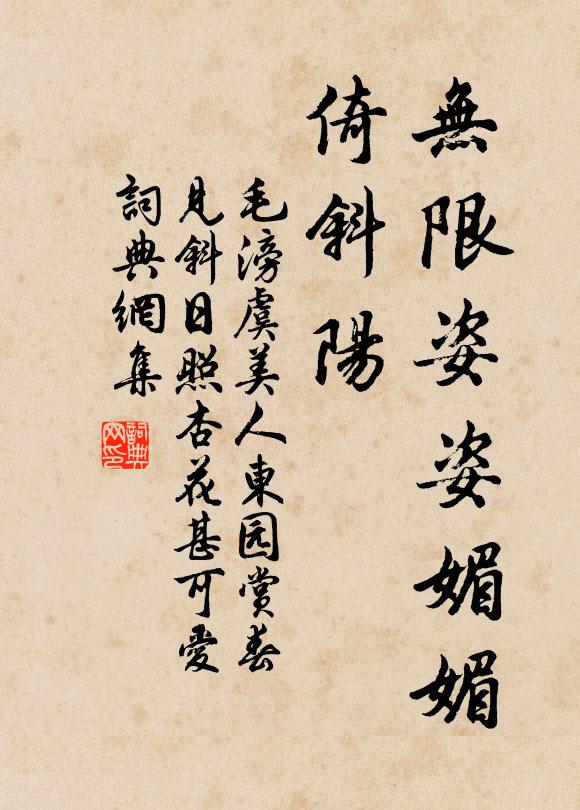 無限姿姿媚媚
倚斜陽
毛滂虞美人東园賞春
見斜日照杏花甚可愛
詞典網集
詞典网印